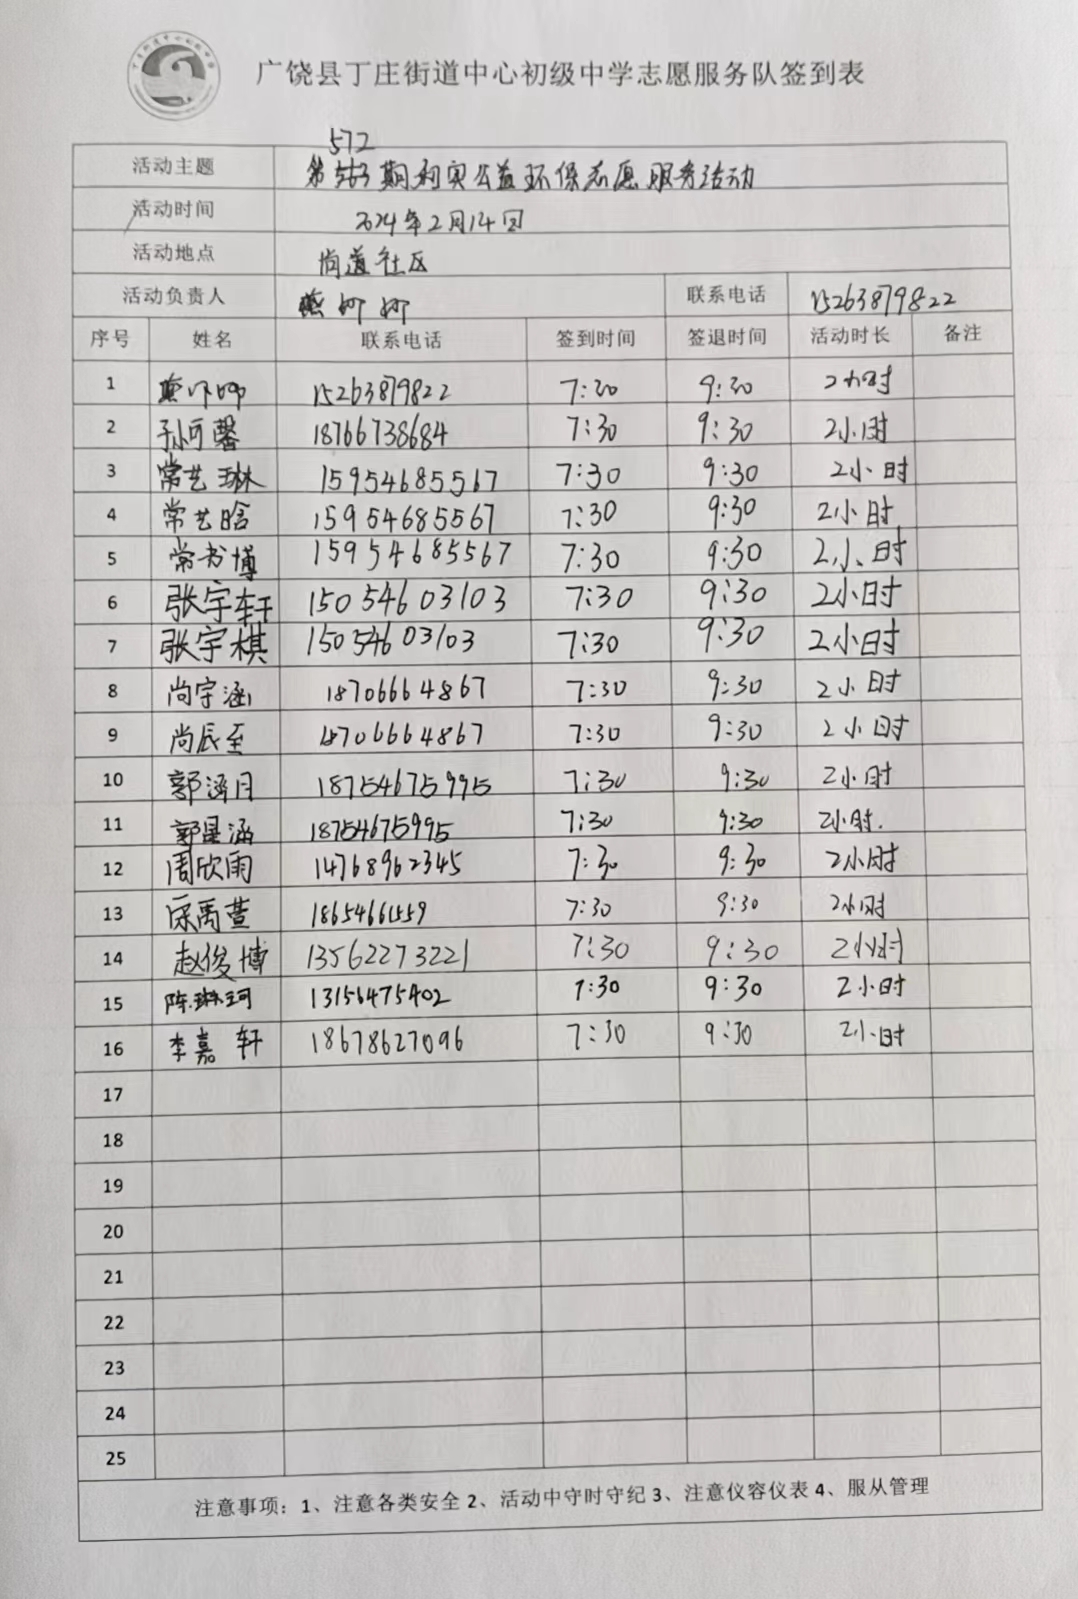 广饶县丁庄街道中心初级中学志愿服务队签到表
572
活动主题 第563期利奥公益环保志愿服务活动
活动时间 2024年2月14日
活动地点 尚道社区
活动负责人 燕娜娜 联系电话 15263879822
序号 姓名 联系电话 签到时间 签退时间 活动时长 备注
1 15263879822 7:30 9:30 2小时
2 孙可馨 18766738684 7:30 9:30 2小时
3 常艺琳 15954685567 7:30 9:30 2小时
4 常艺晗 15954685567 7:30 9:30 2小时
5 常书博 15954685567 7:30 9:30 2小时
6 张宇轩 15054603103 7:30 9:30 2小时
7 张宇棋 15054603103 7:30 9:30 2小时
8 尚宇涵 18706664867 7:30 9:30 2小时
9 尚辰至 18706664867 7:30 9:30 2小时
10 郭涵月 187546759995 7:30 9:30 2小时
11 郭星涵 18754675995 7:30 9:30 2小时.
12 周欣雨 14768962345 7:30 9:30 2小时
13 禹萱 7:30 9:30 2小时
14 赵俊博 13562273221 7:30 9:30 2小时
15 陈琳珂 13156475402 7:30 9:30 2小时
16 李嘉轩 18678627096 7:30 9:30 2小时
17
18
19
20
21
22
23
24
25
注意事项：1、注意各类安全 2、活动中守时守纪 3、注意仪容仪表 4、服从管理